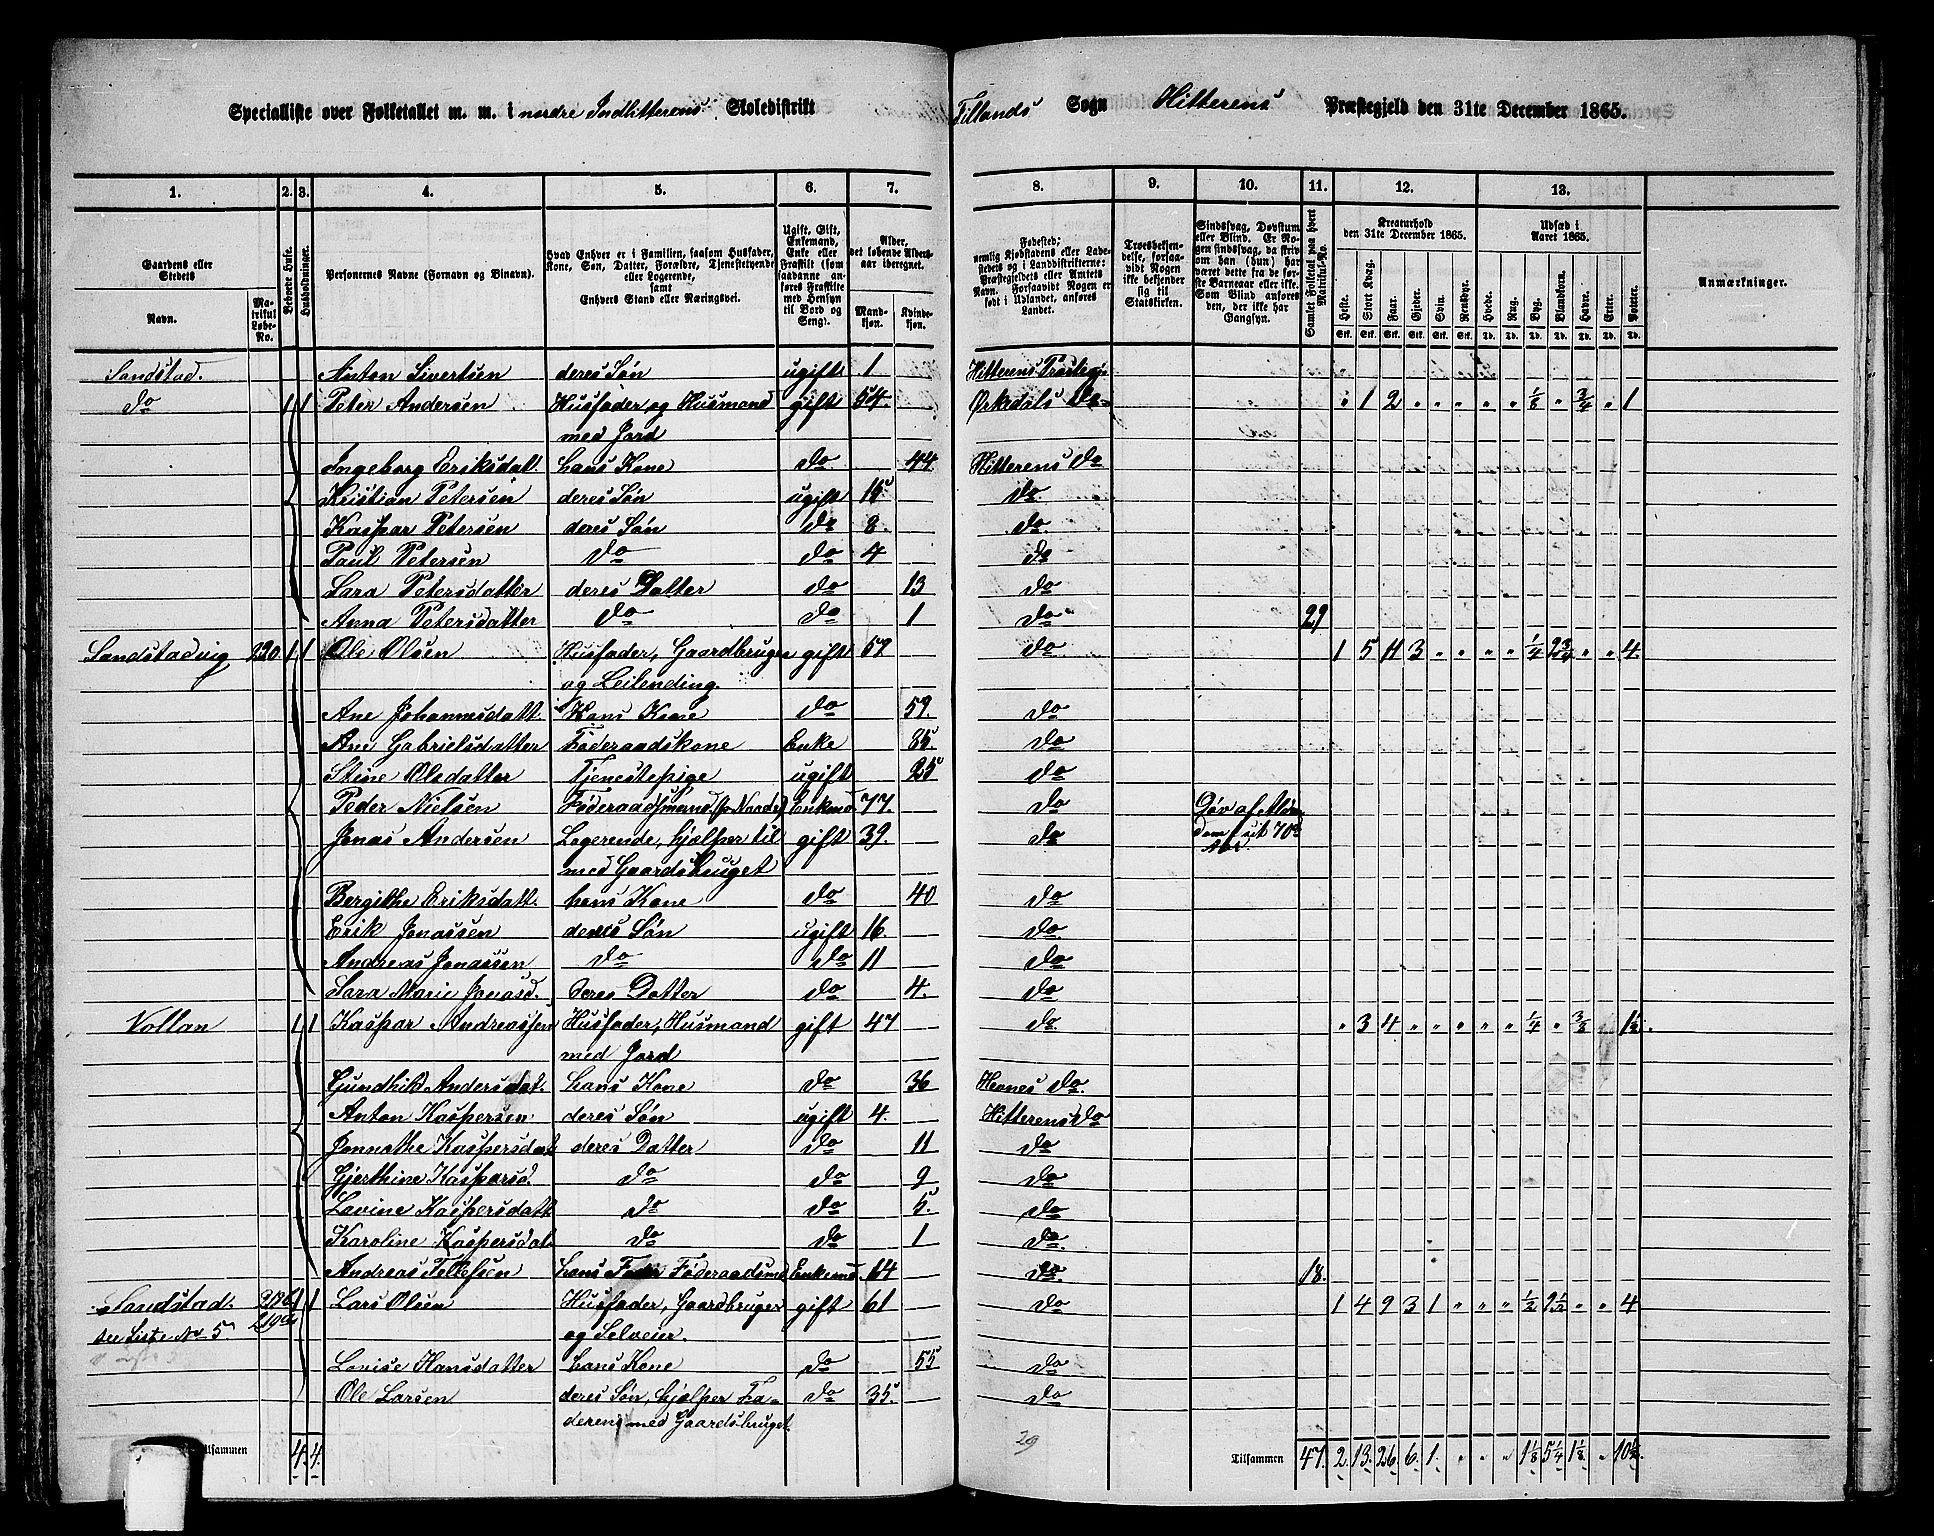 Specialliste over Folketallet m. m. i nordre Indhitterens Skoledistrikt Fillands Sogn Hitterens Præstegjeld den 31te December 1865.
1. 2. 3. 4. 5. 6. 7. 8. 9. 10. 11. 12. 13.
Gaardens eller Stedets Navn.
Matrikul Løbe-No.
Beboede Huse.
Husholdninger.
Personernes Navne (Fornavn og Binavn).
Hvad Enhver er i Familien, saasom Husfader, Kone, Søn, Datter, Forældre, Tjenestetyende eller Logerende, samt Enhvers Stand eller Næringsvei.
Ugift, Gift, Enkemand, Enke eller Fraskilt (som saadanne anføres Fraskilte med Hensyn til Bord og Seng).
Alder, det løbende Aldersaar iberegnet.
Mandkjøn. Kvindekjøn.
Fødested; nemlig Kjøbstadens eller Ladestedets og i Landdistrikterne: Præstegjeldets eller Amtets Navn. Forsaavidt Nogen er født i Udlandet, anføres Landet.
Troesbekjendelse, forsaavidt Nogen ikke bekjender sig til Statskirken.
Sindssvag, Døvstum eller Blind. Er Nogen sindssvag, da skriv om han (hun) har været dette fra de første Barneaar eller ikke. Som Blind anføres den, der ikke har Gangsyn.
Samlet Folketal paa hvert Matrikul-No.
Kreaturhold den 31te December 1865.
Heste. Stort Kvæg. Faar. Gjeder. Svin. Rensdyr.
Udsæd i Aaret 1865.
Hvede. Rug. Byg. Blandkorn. Havre. Erter. Poteter.
Anmærkninger.
Sandstad. Anton Sivertsen deres Søn ugift 1 Hitterens Præstegj.
do 1 1 Peter Andersen Husfader og Husmand gift 54. Ørkedals Do " 1 2 " " " " " 1/8 " 3/4 " 1
med Jord
Ingeborg Eriksdat. hans Kone do 44 Hitterens do
Kristian Petersen deres Søn ugift 15 do
Kaspar Petersen deres Søn do 8. do
Paul Petersen do do 4 do
Sara Petersdatter deres Datter do 13 do
Anna Petersdatter do do 1 do 29
Sandstadvig 220 1 1 Ole Olsen Husfader, Gaardbruger gift 59 do 1 5 11 3 " " " " 1/4 2 3/4 " " 4.
og Leilending.
Ane Johannesdatt. Hans Kone do 59. do
Ane Gabrielsdatter Føderaadskone Enke 85. do
Stine Olsdatter Tjenestepige ugift 25 do
Peder Nielsen Føderaadsmand Enkemd 77. do Døv af Alder
Jonas Andersen Logerende, hjælper til gift 39. do dom sit 70de Aar.
med Gaardsbruget
Bergithe Eriksdatt. hans Kone do 40 do
Erik Jonassen deres Søn ugift 16. do
Andreas Jonassen do do 11 do
Sara Marie Jonasd. deres Datter do 4. do
Vollan 1 1 Kaspar Andreassen Husfader, Husmand gift 47 do " 3 4 " " " " " 1/4 " 3/8 " 1 1/2.
med Jord
Gundhild Andersdat. hans Kone do 36 Hevnes do.
Anton Kaspersen deres Søn ugift 4. Hitterens do
Jonnethe Kaspersdat deres Datter do 11 do
Gjerthine Kasparsd. do do 9 do
Lovine Kaspersdatt do do 5. do
Karoline Kaspersdat. do do 1 do.
Andreas Tellefsen hans Fader Føderaadsmd Enkemd. 64 do. 18.
Sandstad. 218 1 1 Lars Olsen Husfader, Gaardbruger gift 61 do 1 4 9 3 1 " " " 1/2 2 1/2 " " 4
see Liste No 5. 219 og Selveier.
Lovise Hansdatter hans Kone do 55 do
Ole Larsen deres Søn, hjælper Fa- do 35. do
deren med Gaardsbruget.
29
Tilsammen 4. 4. Tilsammen 47. 2. 13. 26. 6. 1. " " " 1 1/8 5 1/4 1 1/8 " 10 1/2.